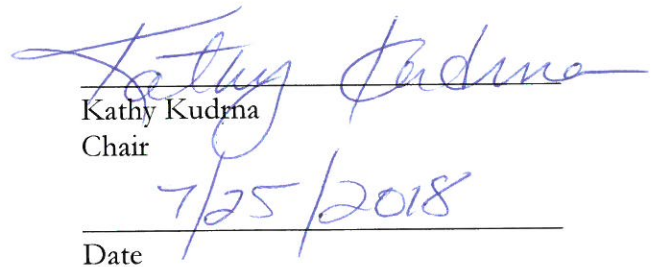 Kathy Kudrna
Kathy Kudrna
Chair
7/25/2018
Date